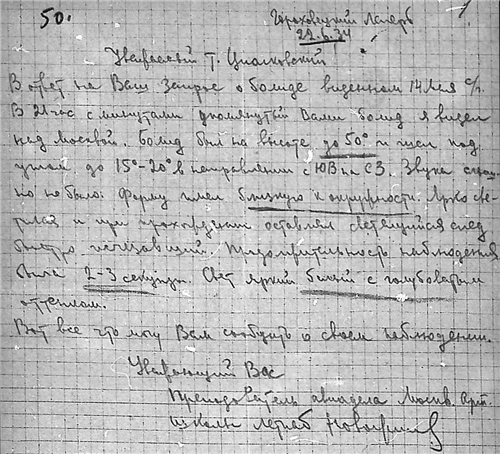 50.
Гороховецкий Лагерь 1
22.6.34
Уважаемый т. Циолковский
В ответ на Ваш запрос о болиде виденном 14 мая с/г.
В 21 час с минутами упомянутый Вами болид я видел
над Москвой. Болид был на высоте до 50° и шел под
углом до 15°-20° в направлении с ЮВ на СЗ. Звука
но не было. Форму имел близкую к окружности. Ярко све-
тился и при прохождении оставлял светящийся след
быстро исчезающий. Продолжительность наблюдения
была 2-3 секунды. Свет яркий белый с голубоватым
оттенком.
Вот все что могу Вам сообщить о своем наблюдении.
Уважающий Вас
Преподаватель авиадела Москв. Арт.
школы